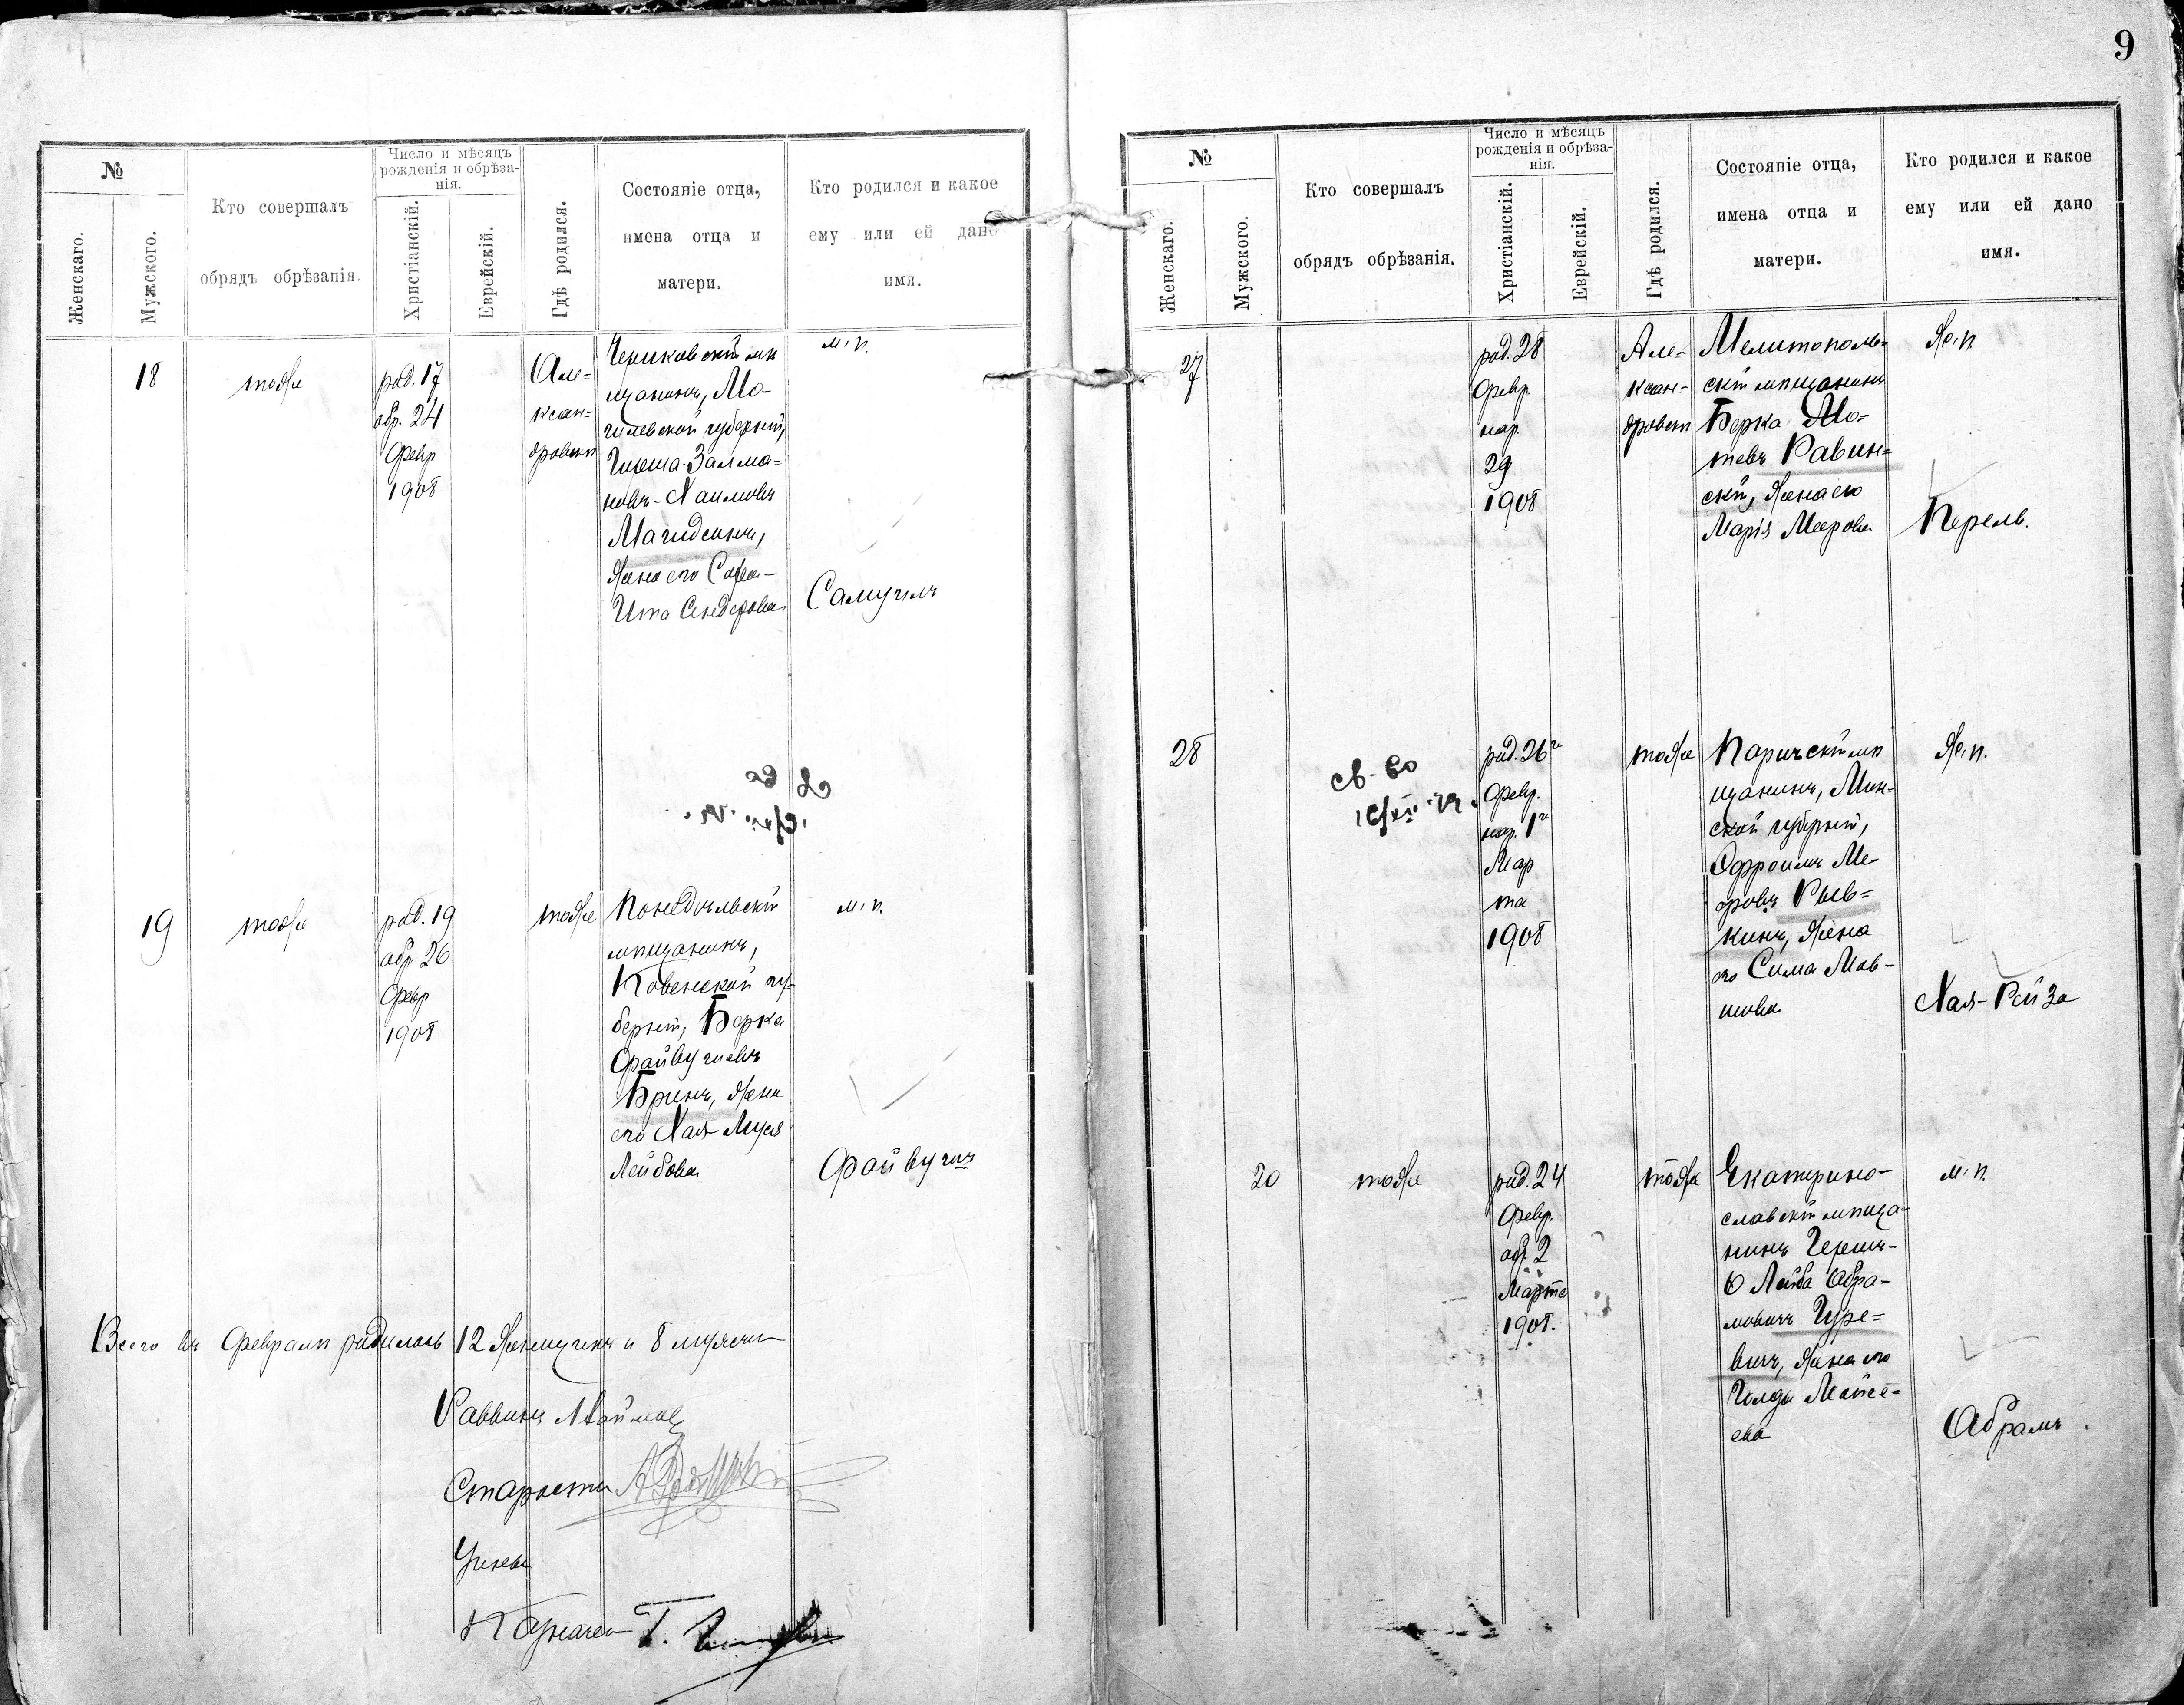 №
Женскаго.
Мужского.
Кто совершалъ
обрядъ обрѣзанія.
Число и мѣсяцъ
рожденія и обрѣза-
нія.
Христіанскій.
Еврейскій.
Гдѣ родился.
Состояніе отца,
имена отца и
матери.
Кто родился и какое
ему или ей дано
имя.
18
тоже
род. 17
обр. 24
Февр
1908
Але=
ксан=
дровскѣ
Чериковскій мѣ
щанинъ, Мо-
гилевской губерніи,
Гирша-Залма=
новъ-Хаимовъ
Магидсинъ,
жена его
Ита Сендерова
м. п.
Самуилъ
19
тоже
род. 19
обр. 26
Февр
1908
тоже
Понедѣльскій
мѣщанинъ,
Ковенской гу-
берніи, Берка
Файвушевъ
Бринъ, жена
его Хая-Муся
Лейбова
м. п.
Файвушъ
Всего въ Февралѣ родилось 12 женщинъ и 8 мужчин
Раввинъ
Староста
Ученый
Казначей Г.
9
№
Женскаго.
Мужского.
Кто совершалъ
обрядъ обрѣзанія.
Число и мѣсяцъ
рожденія и обрѣза-
нія.
Христіанскій.
Еврейскій.
Гдѣ родился.
Состояніе отца,
имена отца и
матери.
Кто родился и какое
ему или ей дано
имя.
27
род. 28
Февр.
нар.
29
1908
Але=
ксан=
дровскѣ
Мелитополь=
скій мѣщанинъ
Берка Мо-
тевъ Равин=
скій, жена его
Марія Меерова
ж. п.
Перель.
28
св-во
род. 26го
Февр.
нар. 1го
Мар
та
1908
тоже
Паричскій мѣ
щанинъ, Мин-
ской губерніи,
Эфроимъ Ме-
еровъ Рыв=
кинъ, жена
его Сима Мов-
шова
ж. п.
Хая-Рейза
20
тоже
род. 24
Февр.
обр. 2
Марта
1908.
тоже
Екатерино-
славскій мѣща-
нинъ Гершъ-
Лейба Абра-
мовичъ Гуре=
вичъ, жена его
Голда Мойсе=
ева
м. п.
Абрамъ.